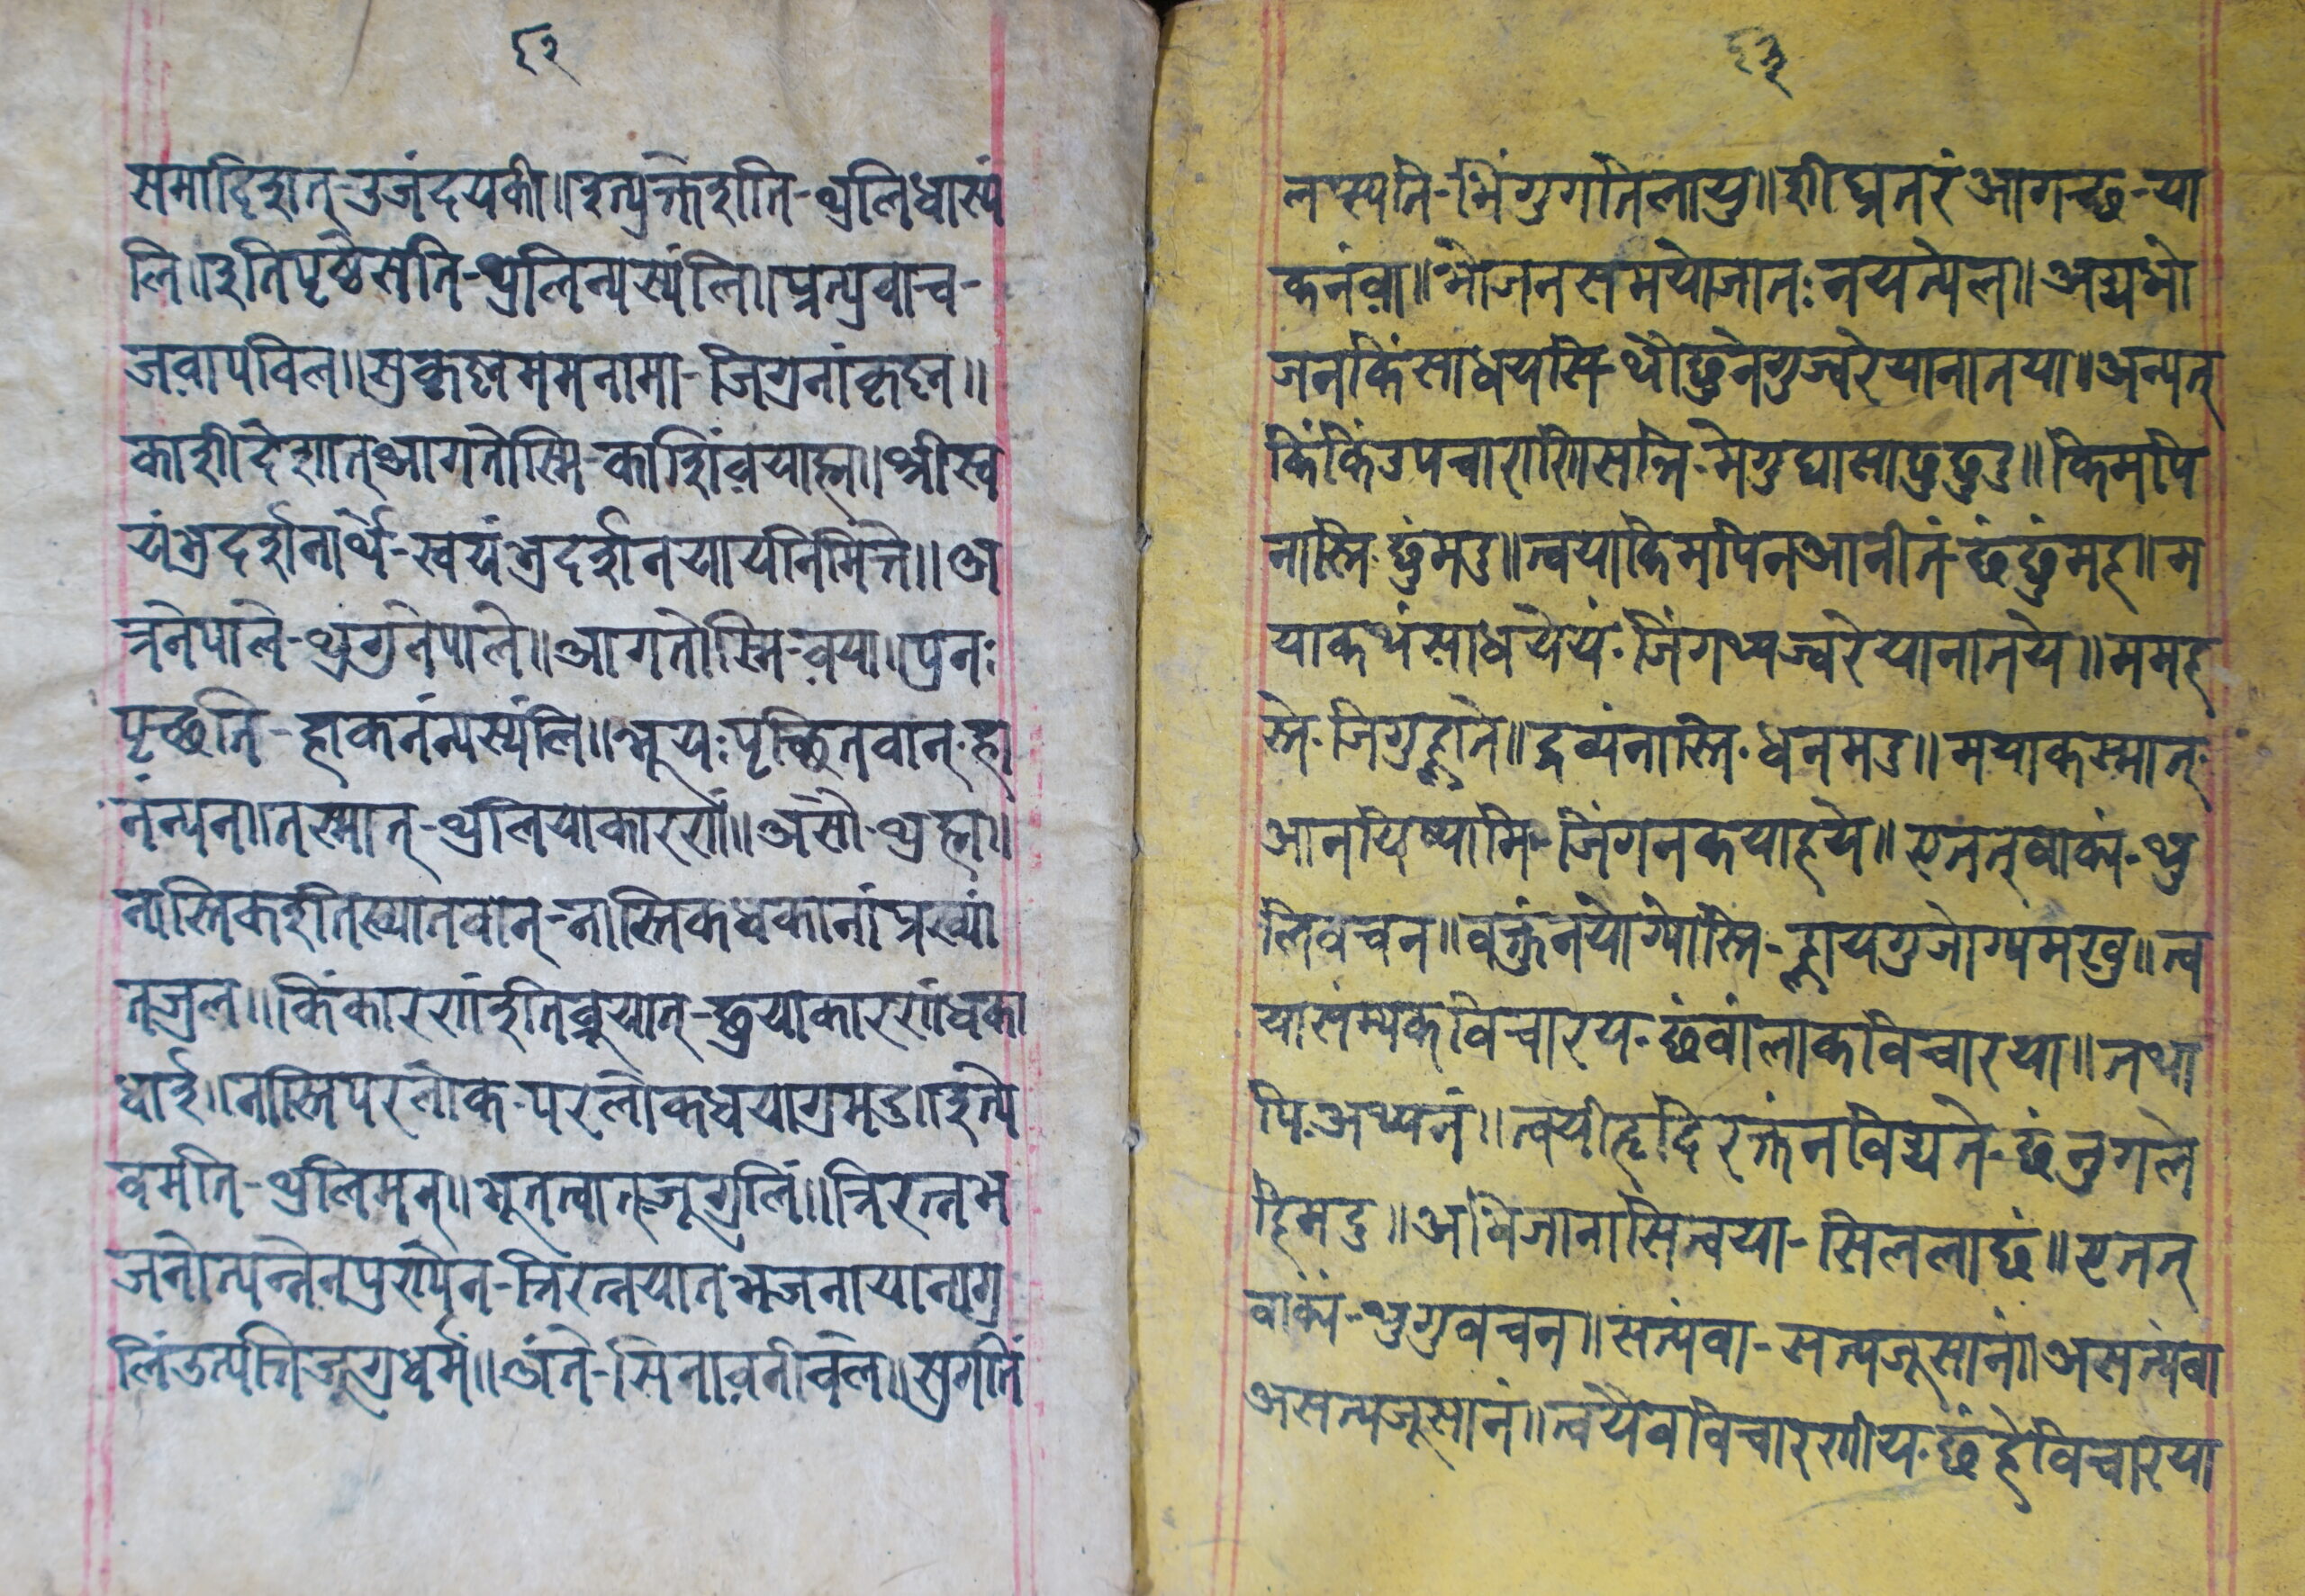 ६२
समादिशत्-उजंदयकी॥इत्युक्तेशति-थ्वलिधास्यं
लि॥इतिपृष्ठेसति-थ्वलिन्यस्यंलि॥प्रत्युवाच-
जवापविल॥शुक्कृष्णममनामा-जिगुनांकृष्ण॥
काशीदेशात्आगतोस्मि-काशिंवयाह्म॥श्रीस्व
यंभूदर्शनार्थे-स्वयंभूदर्शनयायनिमिंत्ते॥अ
त्रनेपाले-थुगुनेपाले॥आगतोस्मि-वया॥पुनः
पृच्छति-ह्नाकनंन्यस्यंलि॥भूयःपृच्छितवान्-ह्ना
नंन्यन॥तस्मात्-थ्वलियाकारणं॥असौ-थ्वह्म॥
नास्तिकइतिख्यातवान्-नास्तिकधकानांप्रख्यां
तजुल॥किंकारणंइतिब्रूयात्-छुयाकारणंधका
धाई॥नास्तिपरलोक-परलोकधयागुमडु॥इत्ये
वमति-थ्वलिमन्॥भूतत्वात्-जूगुलिं॥त्रिरत्नभ
जनोत्पन्नेनपुण्येन-त्रिरत्नयातभजनायानागु
लिंउत्पत्तिजूगुधर्मं॥अंते-सिनावनीवेल॥सुगतिं
६३
लप्स्यति-भिंगुगतिलायु॥शीघ्रतरंआगच्छ-या
कनंवा॥भोजनसमयोजातः-नयत्येल॥अद्यभो
जनकिंसाधयसि-थौछुनेगुज्वरेयानातया॥अन्यत्
किंकिंउपचाराणिसन्ति-मेगुघासाछुछुडु॥किमपि
नास्ति-छुंमडु॥त्वयाकिमपिनआनीतं-छंछुंमह॥म
याकथंसाधयेयं-जिंगथ्यज्वरेयानातये॥ममह
स्ते-जिगुल्हाते॥द्रव्यंनास्ति-धनमडु॥मयाकस्मात्-
आनयिष्यामि-जिंगनकयाहये॥एतत्वाक्यं-थु
लिवचन॥वक्तुंनयोग्योस्ति-ल्हायगुजोग्यमखु॥त्व
यासंम्यक्विचारय-छंवांलाकविचारया॥तथा
पि-अथ्यनं॥त्वयीहृदिरक्तंनविद्यते-छंनुगले
हिमदु॥अभिजानासित्वया-सिललाछं॥एतत्
वाक्यं-थुगुवचन॥सत्यंवा-सत्यजूसानं॥असत्यंवा
असत्यजूसानं॥त्वयैवविचारणीय-छंहेविचारया